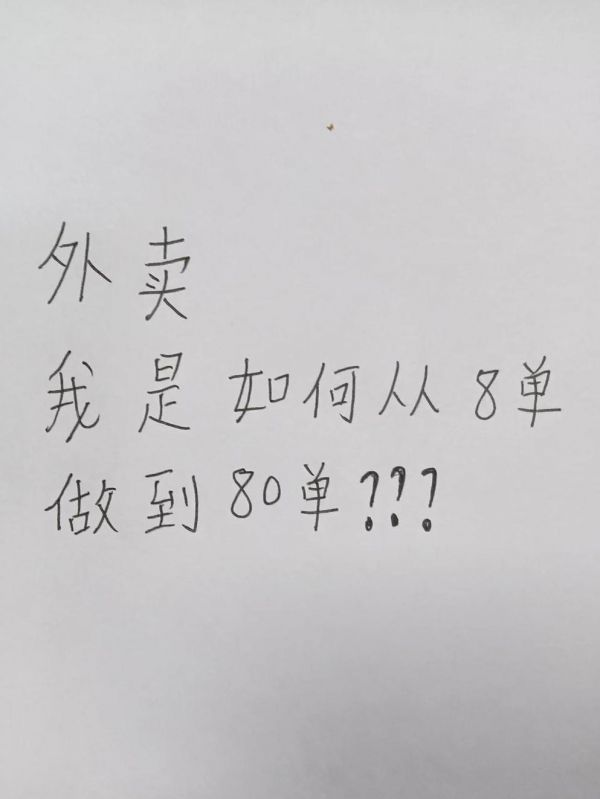 外卖
我是如何从8单
做到80单???